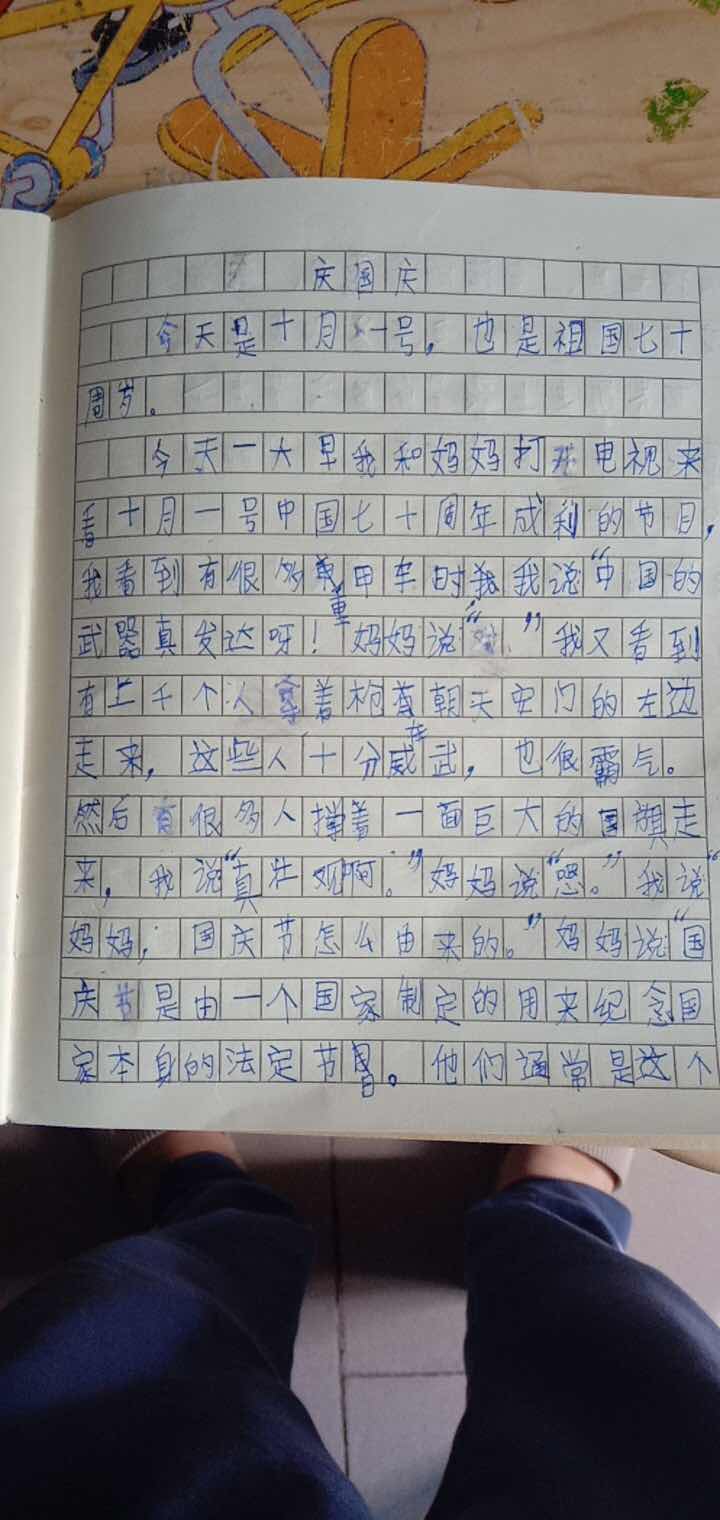 庆国庆
今天是十月一号，也是祖国七十
周岁。
今天一大早我和妈妈打开电视来
看十月一号中国七十周年成利的节目，
我看到有很多甲车时我说“中国的
武器真发达呀！妈妈说“对”我又看到
有上千个人拿着枪在朝天安门的左边
走来，这些人十分威武，也很霸气。
然后有很多人撑着一面巨大的国旗走
来，我说“真壮观啊。”妈妈说“恩。”我说“
妈妈，国庆节怎么由来的。”妈妈说“国
庆节是由一个国家制定的用来纪念国
家本身的法定节日。他们通常是这个